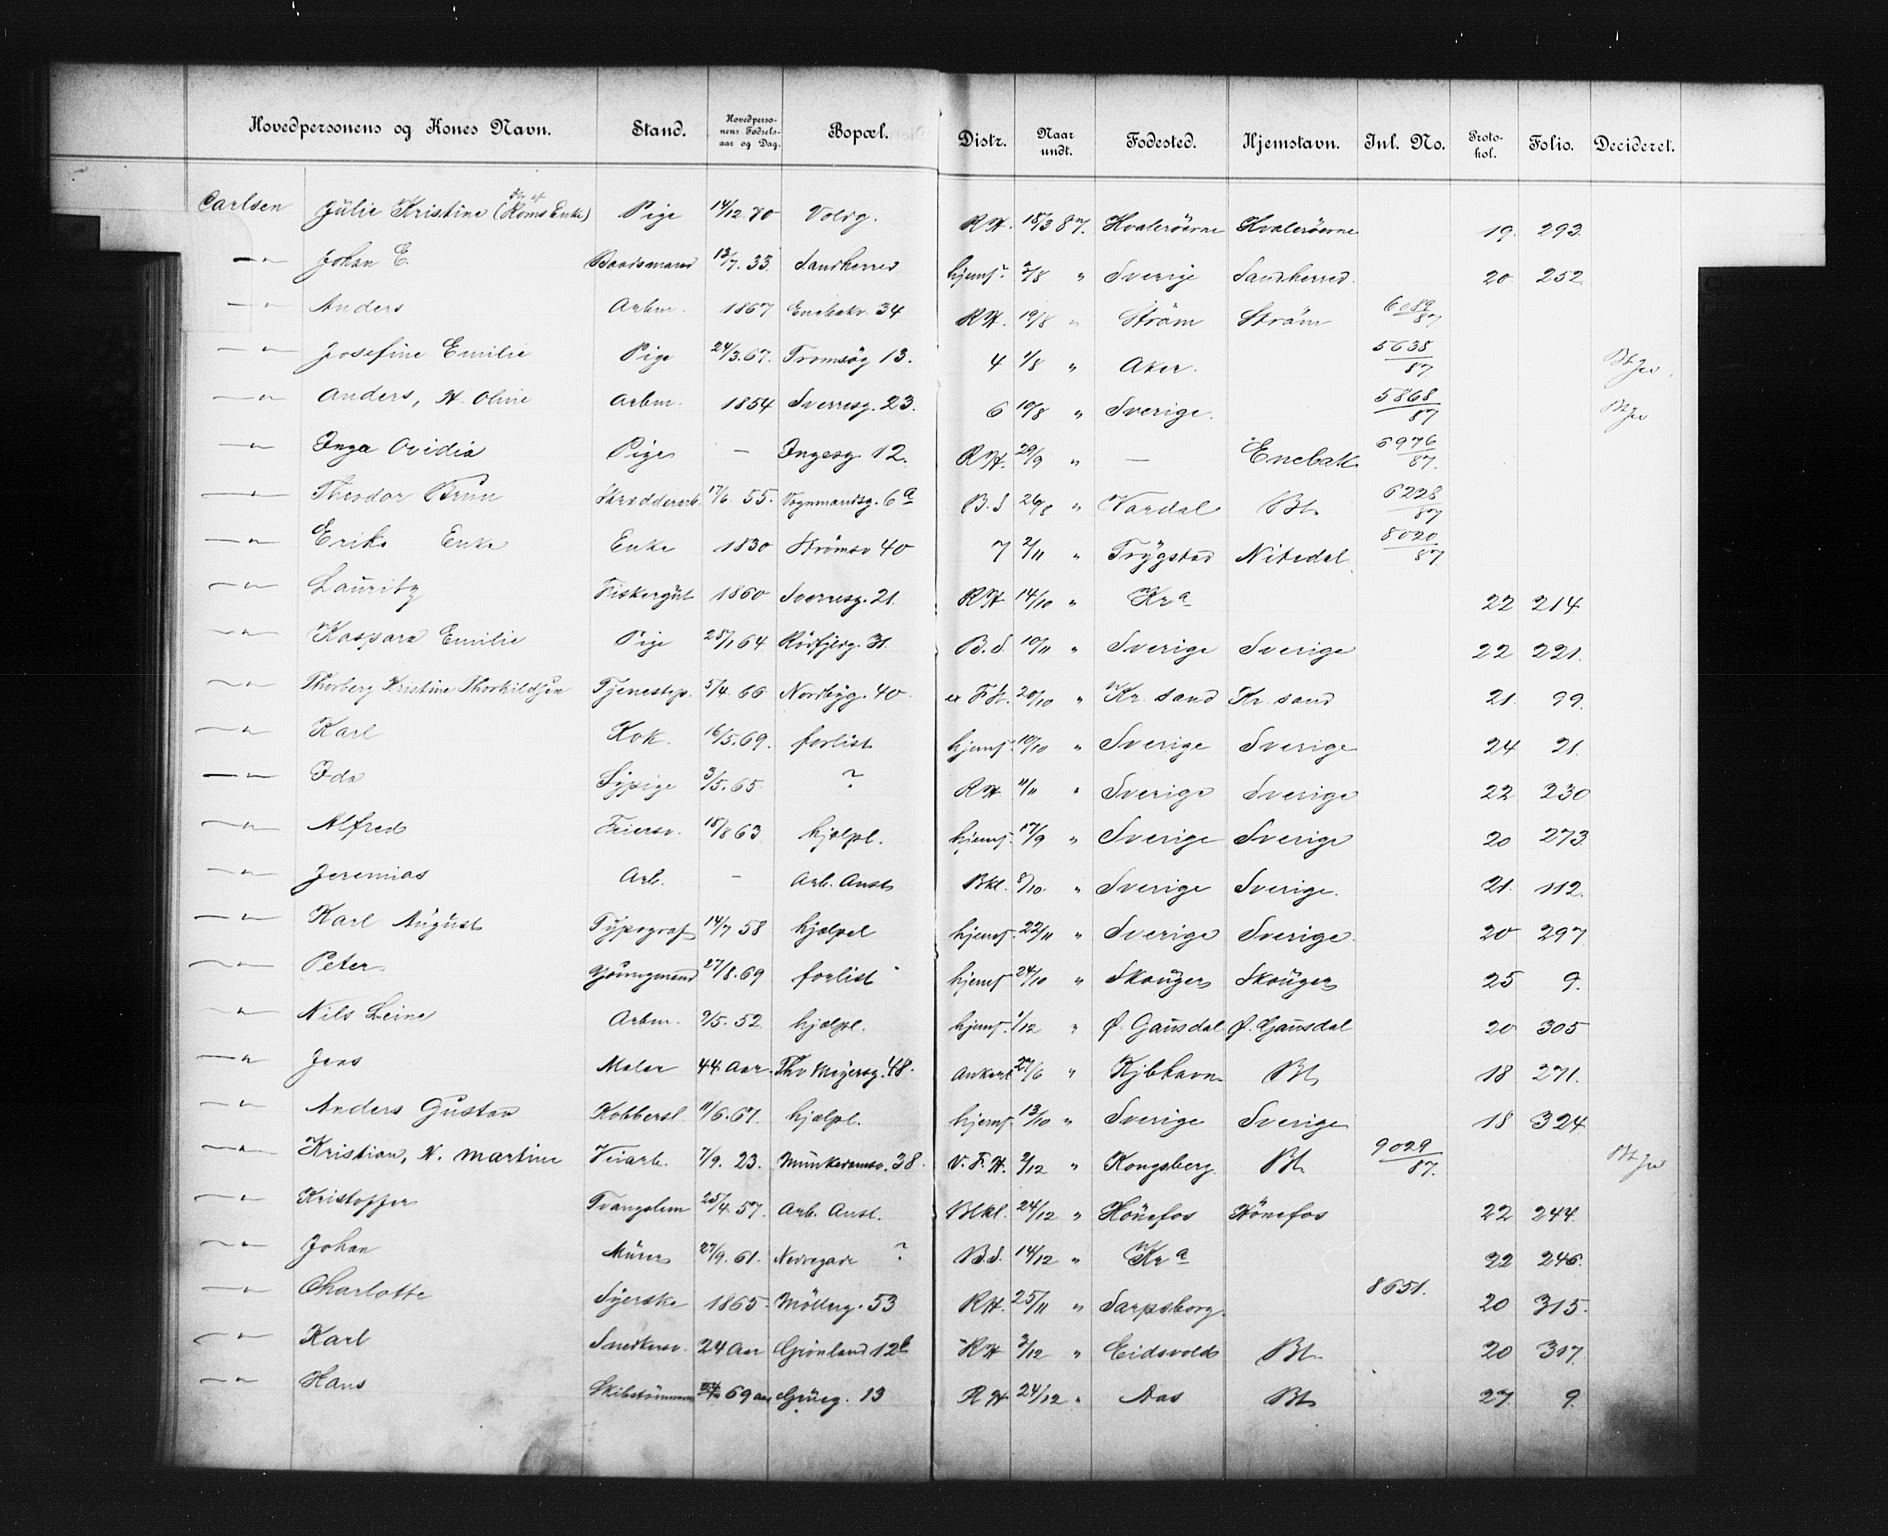 Hovedpersonens og Kones Navn. Stand. Hovedpersonens Fødselsaar og Dag. Bopæl. Distr. Naar undt. Fødested. Hjemstavn. Inl. No. Protokol. Folio. Decideret.
Carlsen Julie Kristine Pige 14/12.70 Volvg. RH. 18/3 87. Hvalerøerne Hvalerøerne 19. 293.
—"— Johan E. Baadsmand 13/7.33. Sandherred hjemf. 2/8 " Sverige Sandherred. 20 252
—"— Anders Arbm. 1867 Enebakv. 34 RH. 19/8 " Strøm Strøm 6089/87
—"— Josefine Emilie Pige 24/3.67. Tromsøg 13. 4 1/8 " Aker. 5638/87
—"— Anders, H. Oline Arbm. 1854 Sverresg. 23. 6 10/8 " Sverige. 5868/87
—"— Inga Ovidia Pige — Ingesg. 12. RH. 29/9 " — Enebak 6976/87.
—"— Theodor Brun 17/6 55. Vognmandsg. 6a B.S 26/8 " Vardal Bt. 6228/87
—"— Erik Enke Enke 1830 Strømsv 40 7 2/11 " Trygstad Nitedal. 8020/87
—"— Lauritz Fiskergut 1860 Sverresg. 21. RH 14/10 " Kra 22 214
—"— Kaspara Emilie Pige 28/1 64 Rødfjeldg. 31. B.S. 10/11 " Sverige Sverige 22 221.
—"— Thorberg Kristine Thorkildsen Tjenestep. 5/4. 66 Nordbyg. 40. 20/10 " Kr. sand Kr. sand 21. 99.
—"— Karl Kok. 16/5.69. forlist hjemf. 10/10 " Sverige Sverige 24 21.
—"— Ida Sypige 3/5.65. ? RH. 11/11 " Sverige Sverige 22 230
—"— Alfred Feiersv. 18/8 63 hjælpl. hjemf. 17/9 " Sverige Sverige 20 273
—"— Jeremias Arb. — Arb. Anst. Bkl. 8/10. " Sverige Sverige. 21. 112.
—"— Karl August Typograf 14/7 58 hjælpel hjemf. 22/11 " Sverige Sverige. 20 297
—"— Peter Youngmand 27/8.69 forlist hjemf 24/10 " Skouger Skouger 25 9.
—"— Nils Leine Arbm. 9/5. 52. hjælpl. hjemf. 1/12 " Ø. Gausdal Ø. Gausdal 20 305
—"— Jens Maler 44 Aar. Thv Meyersg. 48. Ankerl. 27/6 " Kjbhavn Bt. 18 271.
—"— Anders Gustav Kobbersl. 11/6.67. hjælpl. hjemf. 13/10 " Sverige Sverige 18 324
—"— Kristian, H. Martine Veiarb. 7/9. 23. Munkedamsv. 38. V.F.H. 2/12 " Kongsberg. Bt. 9029/87.
—"— Kristoffer Tvangslem 25/4.57. Arb. Anst. Blkl. 24/12 " Hønefos Hønefos 22 244.
—"— Johan Murer 27/9. 61. Nedregade ? B.S. 14/12 " Kra 22 246.
—"— Charlotte Syerske 1865. Møllerg. 53 RH. 25/11 " Sarpsborg. 8651. 20 315.
—"— Karl Snedkersv. 24 Aar Grønland 12b RH 3/12 " Eidsvold Bt. 20 317.
—"— Hans 69 aar Grueg. 13 RH 24/12 " Aas Bt. 27. 9.